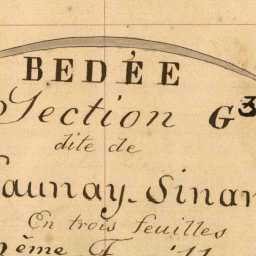 BEDÉE
Section G3
dite de
aunay-Sinan
En trois feuilles
ème F